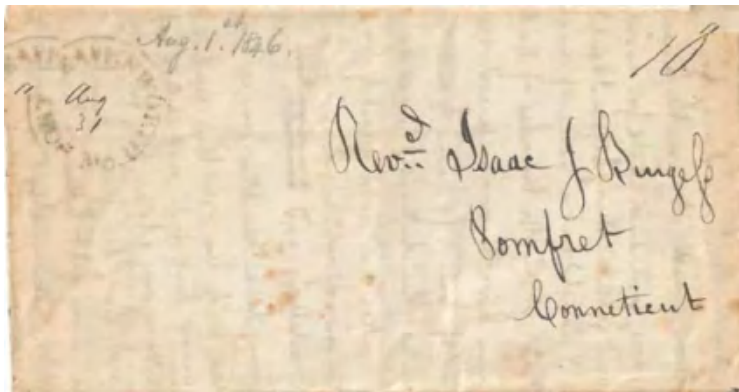 Aug. 1.st 1846.
10
Aug
31
Rev.d Isaac J Burgess
Pomfret
Conneticut